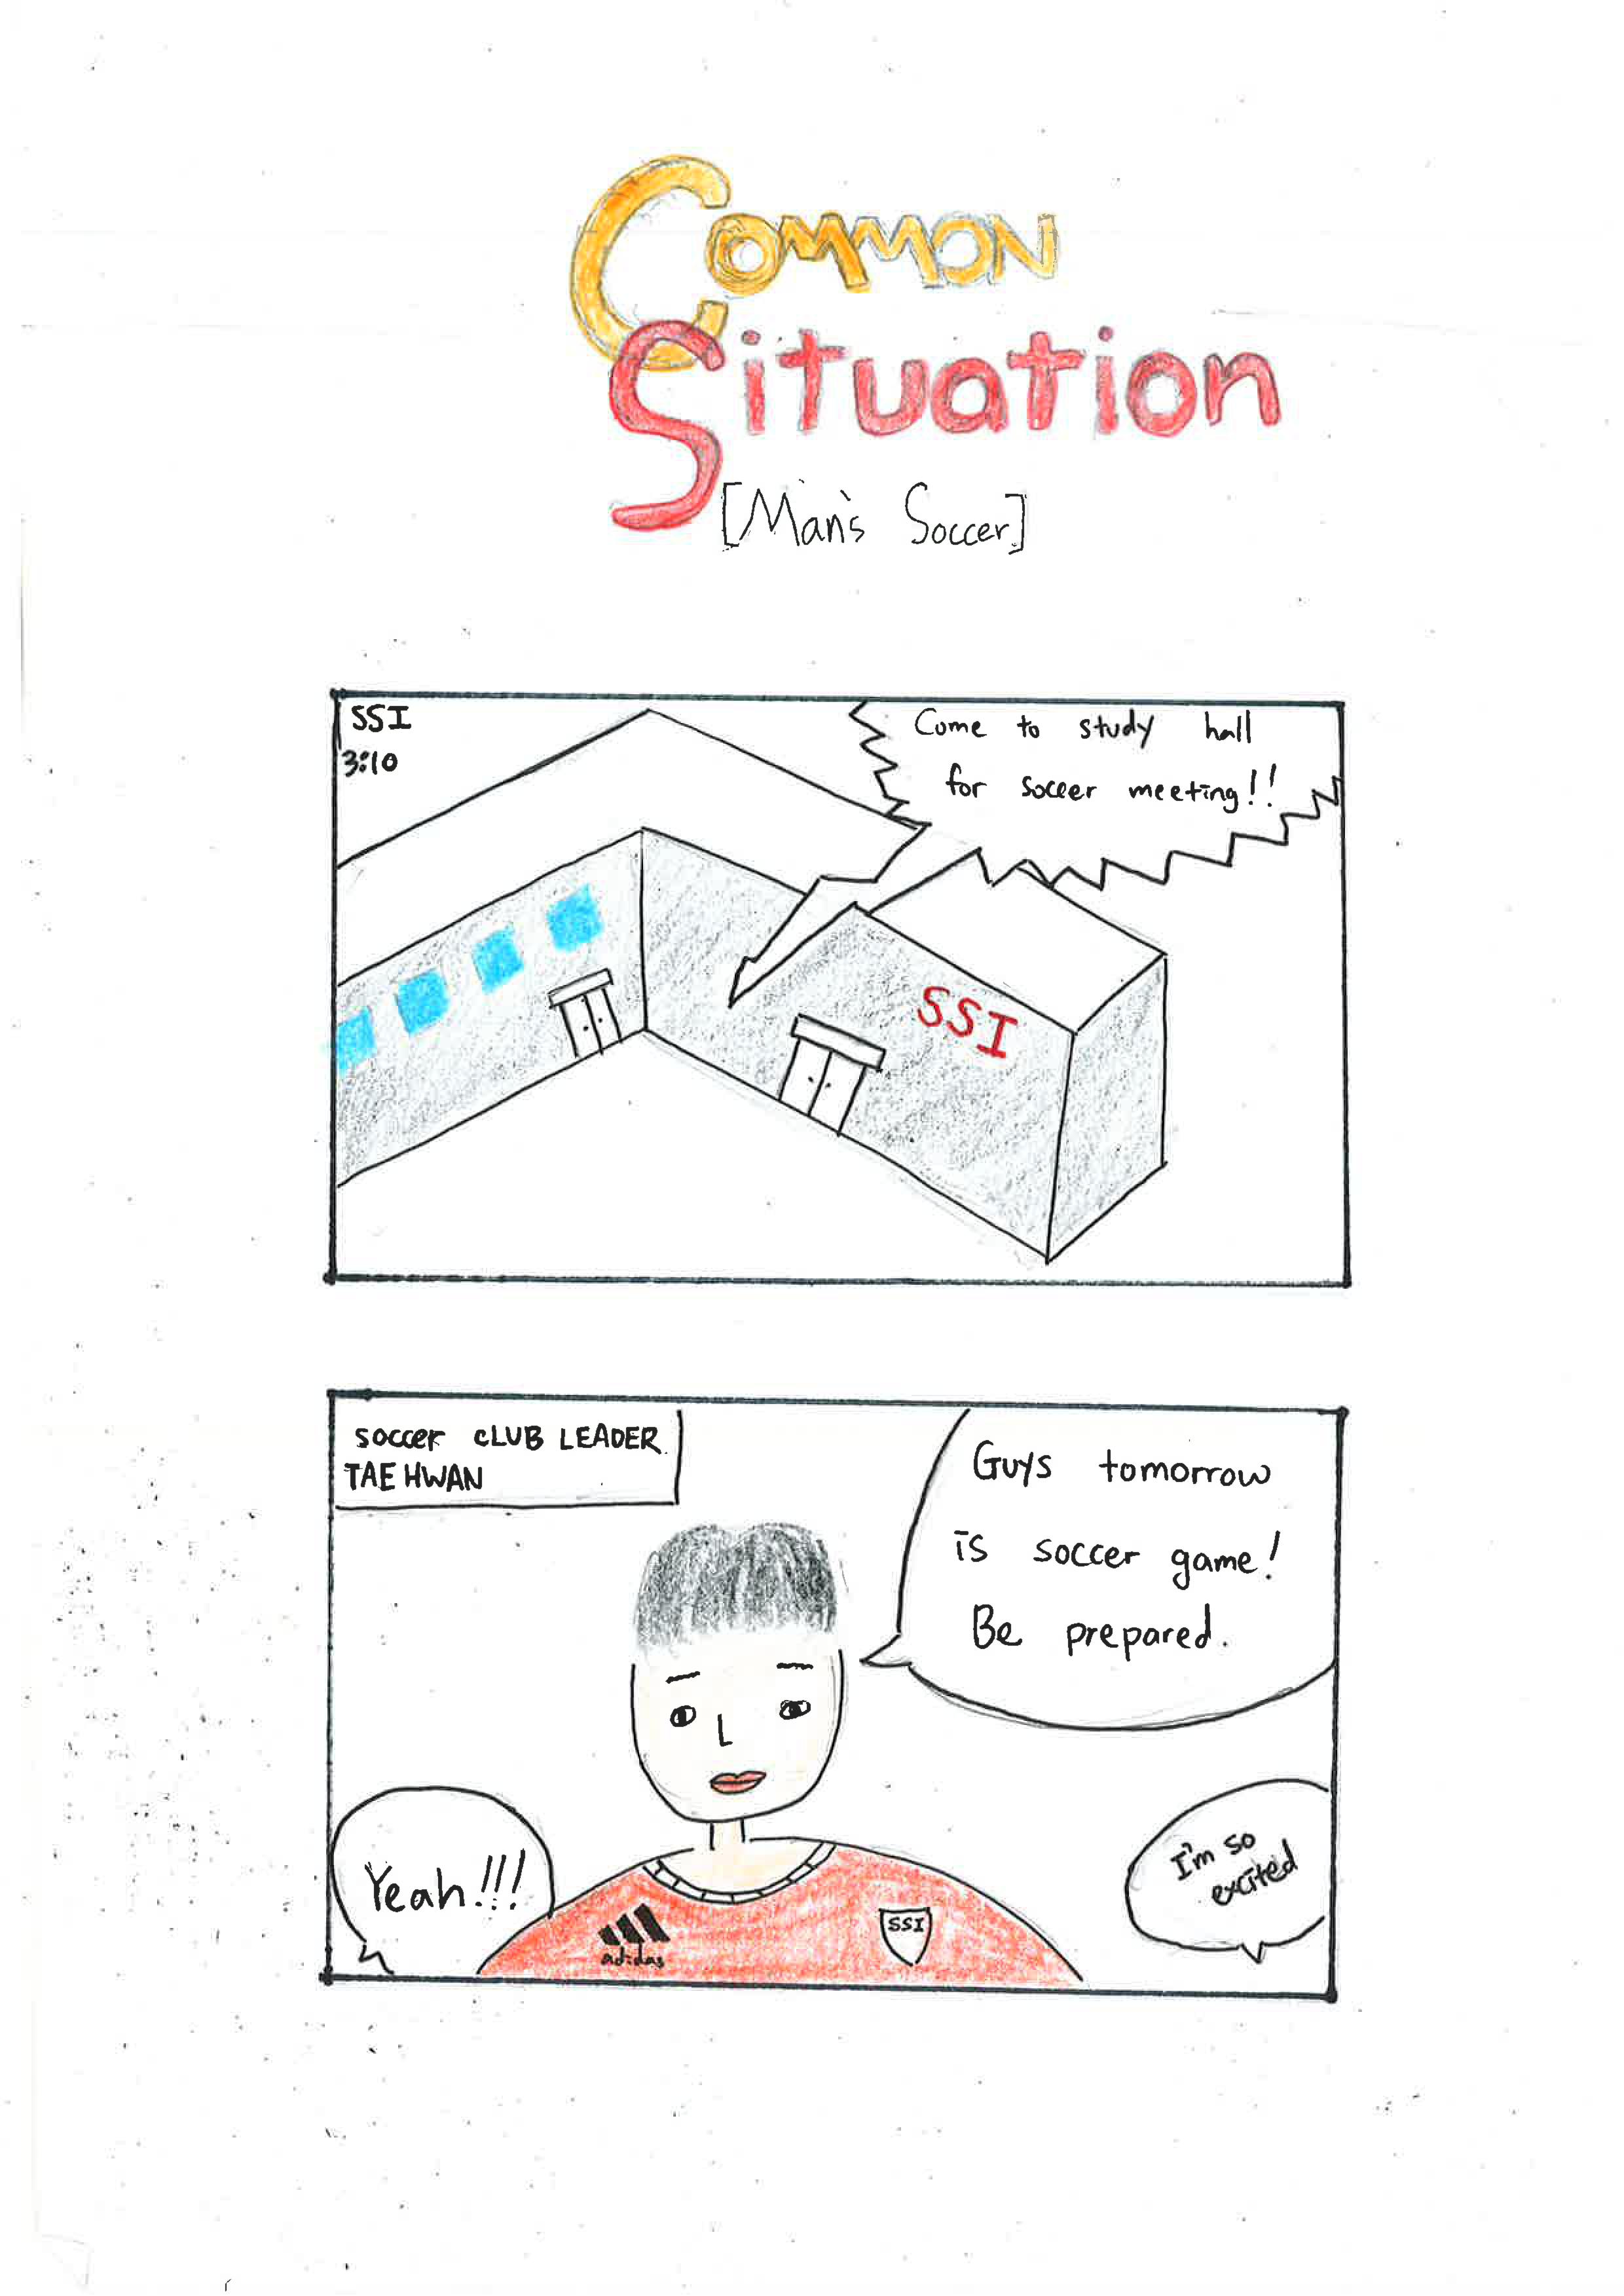 COMMON
Situation
[Man's Soccer]
SSI
3:10
Come to study hall
for soccer meeting!!
SSI
soccer CLUB LEADER
TAE HWAN
Guys tomorrow
is soccer game!
Be prepared.
Yeah!!!
I'm so
excited
adidas
SSI